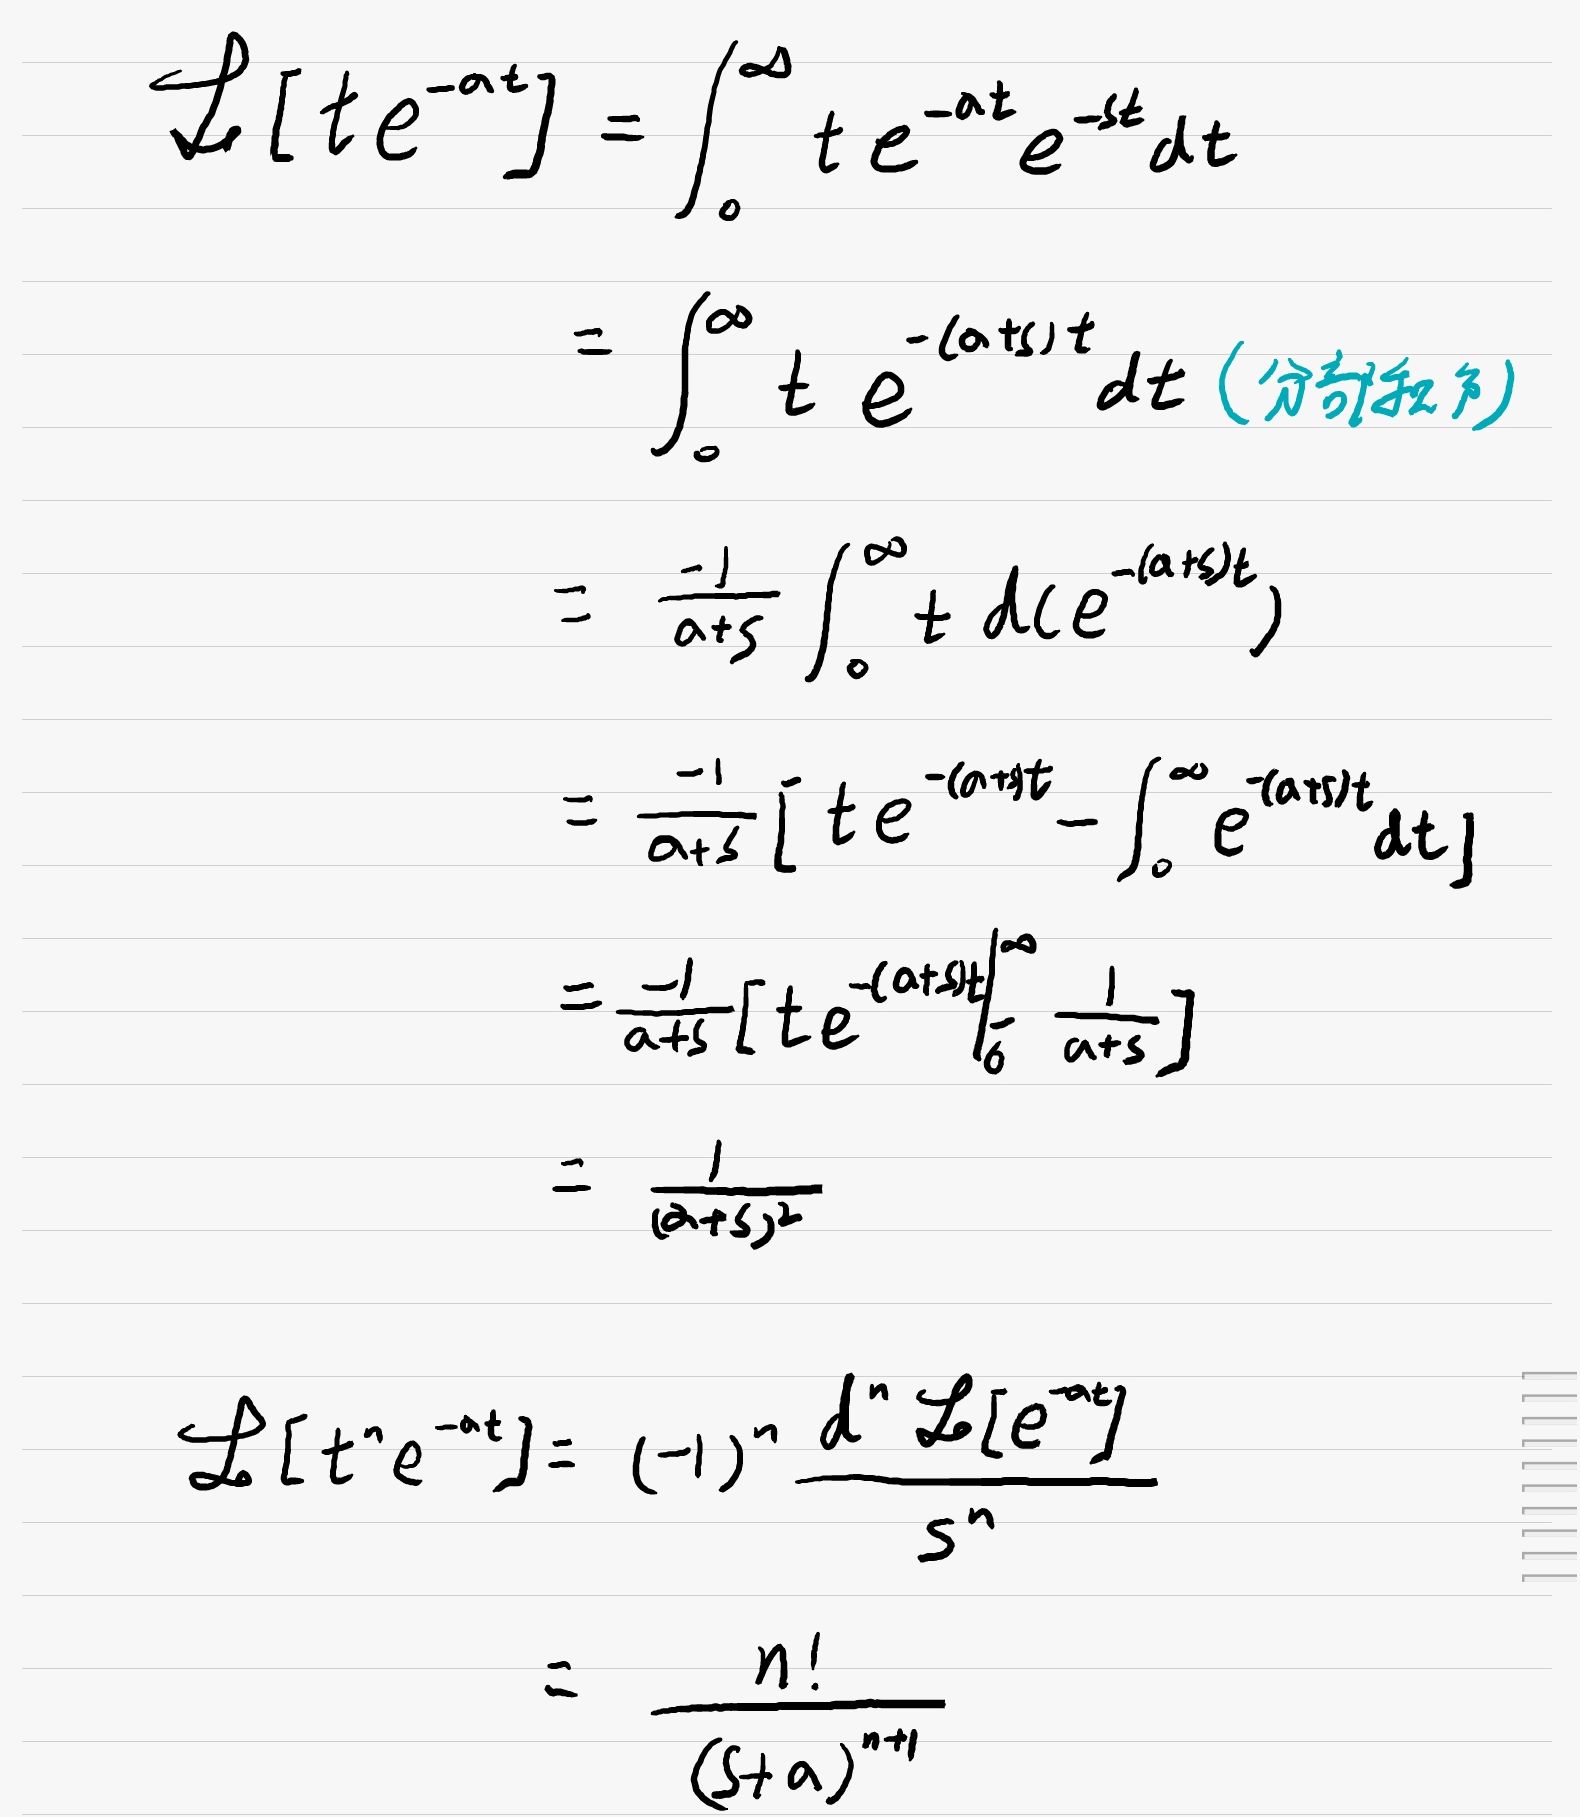 ℒ[te^{-at}] = ∫_0^∞ t e^{-at} e^{-st} dt
= ∫_0^∞ t e^{-(a+s)t} dt (分部积分)
= \frac{-1}{a+s} ∫_0^∞ t d(e^{-(a+s)t})
= \frac{-1}{a+s} [t e^{-(a+s)t} - ∫_0^∞ e^{-(a+s)t} dt]
= \frac{-1}{a+s} [t e^{-(a+s)t}|_0^∞ - \frac{1}{a+s}]
= \frac{1}{(a+s)^2}
ℒ[t^n e^{-at}] = (-1)^n \frac{d^n ℒ[e^{-at}]}{s^n}
= \frac{n!}{(s+a)^{n+1}}